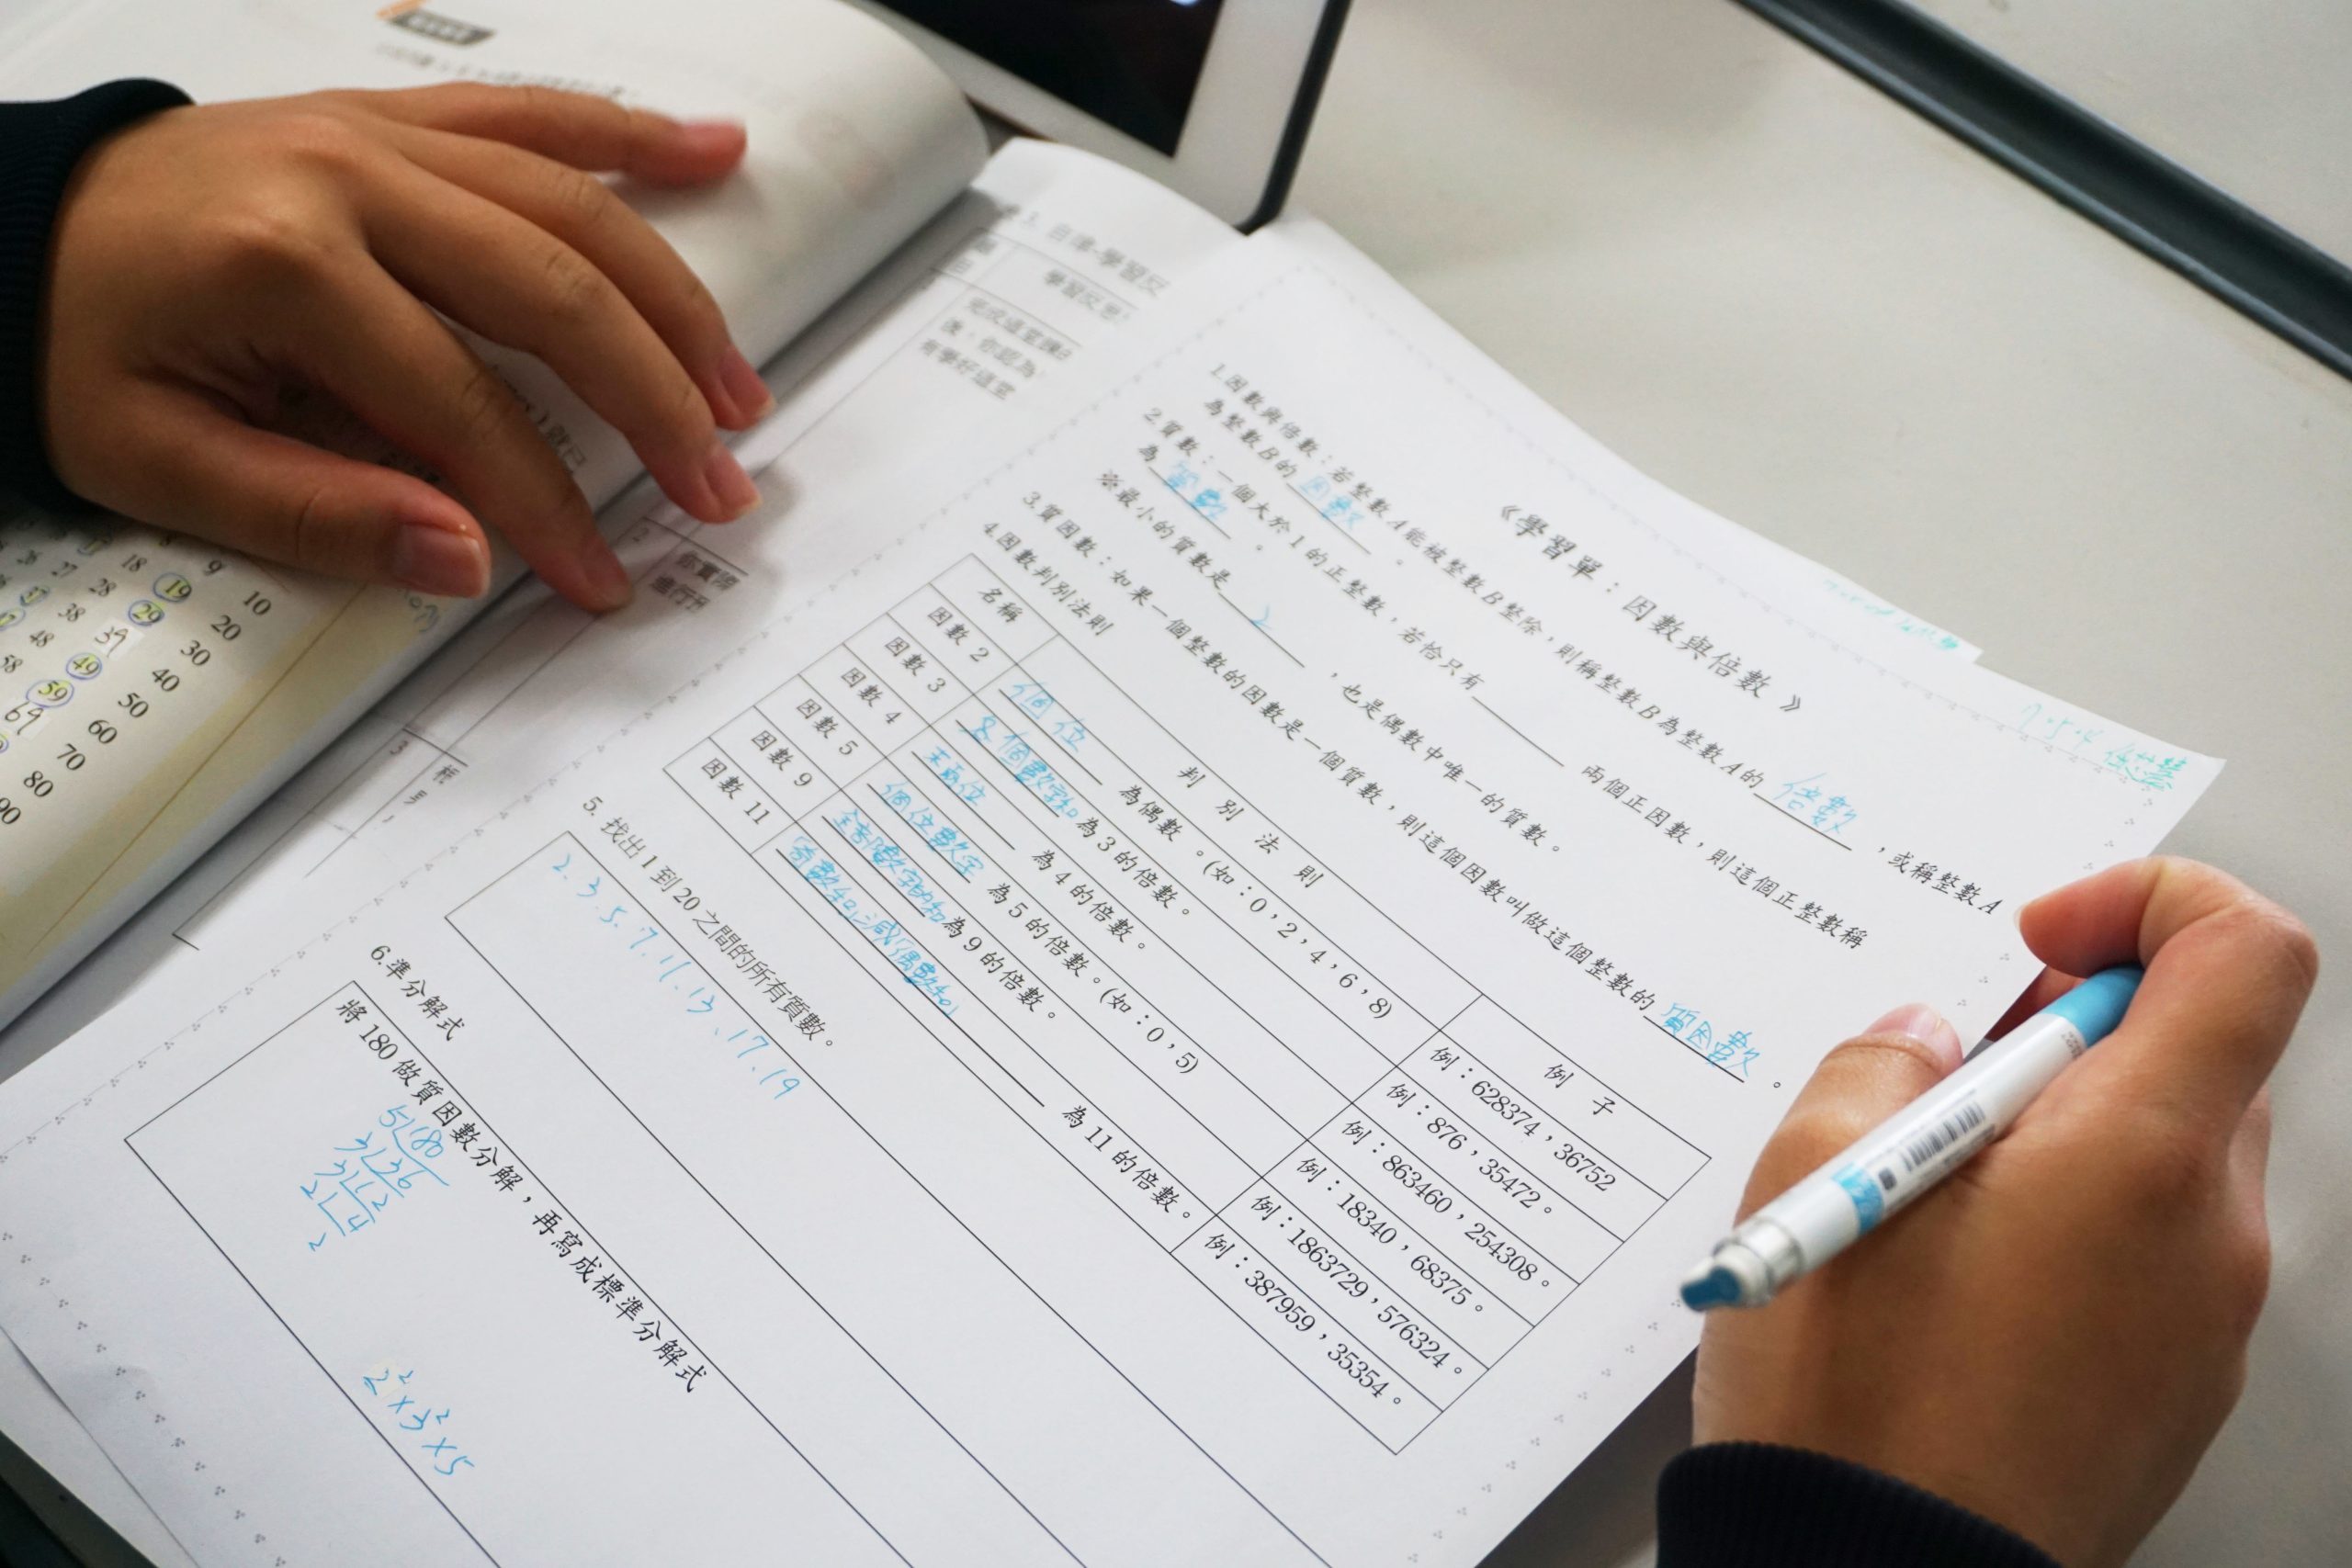 《學習單：因數與倍數》
1.因數與倍數：若整數A能被整數B整除，則稱整數B為整數A的 倍數 ，或稱整數A
為整數B的 因數 。
2.質數：一個大於1的正整數，若恰只有 兩個正因數，則這個正整數稱
為 質數 。
※最小的質數是 2 ，也是偶數中唯一的質數。
3.質因數：如果一個整數的因數是一個質數，則這個因數叫做這個整數的 質因數 。
4.因數判別法則
名稱 判別法則 例子
因數 2 個位 為偶數。(如：0，2，4，6，8) 例：628374，36752
因數 3 個數字和 為3的倍數。 例：876，35472。
因數 4 末兩位 為4的倍數。 例：863460，254308。
因數 5 個位數字 為5的倍數。(如：0，5) 例：18340，68375。
因數 9 全部數字的和 為9的倍數。 例：1863729，576324。
因數 11 奇數和減偶數和 為11的倍數。 例：387959，35354。
5. 找出1到20之間的所有質數。
2.3.5.7.11.13.17.19
6.準分解式
將180做質因數分解，再寫成標準分解式
5 180
3 36
3 12
2 4
2
2²×3²×5
自律-學習反
學習反思
完成這堂課
後，你認為
有學好這堂
你實際
進行
9 10
18 19 20
27 28 29 30
38 39 40
48 49 50
58 59 60
69 70
80
90